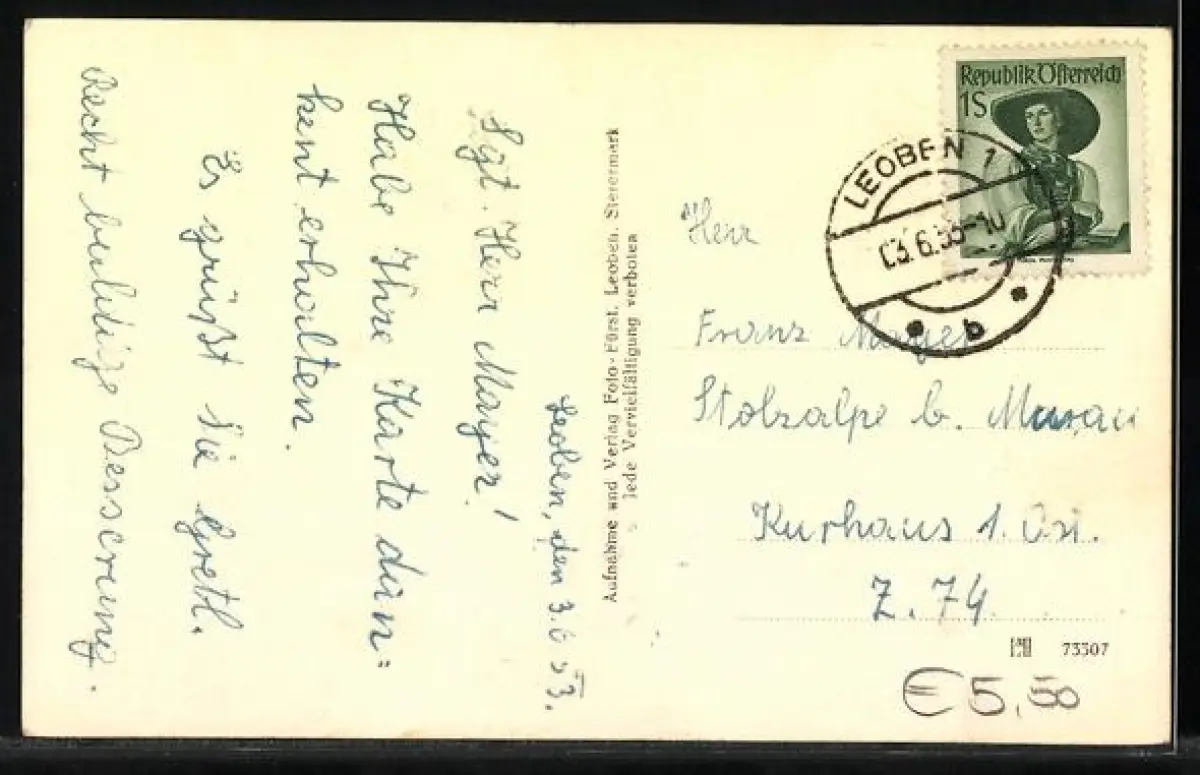 Leoben, den 3.6 53.
Sgt. Herr Mayer!
Habe Ihre Karte dan=
kent erhalten.
Es grüßt Sie Gretl.
Recht baldige Besserung.
Aufnahme und Verlag Foto-Fürst, Leoben, Steiermark
Jede Vervielfältigung verboten
Republik Österreich
1S
LEOBEN 1
03.6.53-10
b
Herr
Franz Mayer
Stolzalpe b. Murau
Kurhaus 1.
Z. 74
73307
€5,50